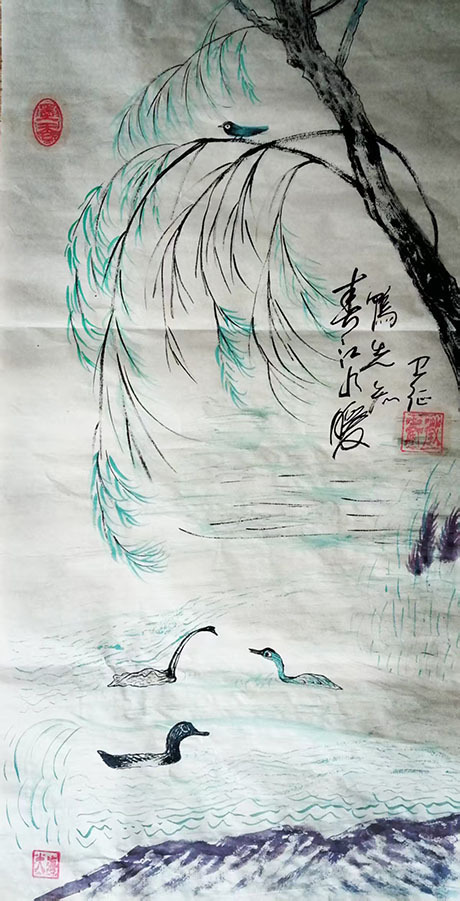 春江水暖
鸭先知
卫征